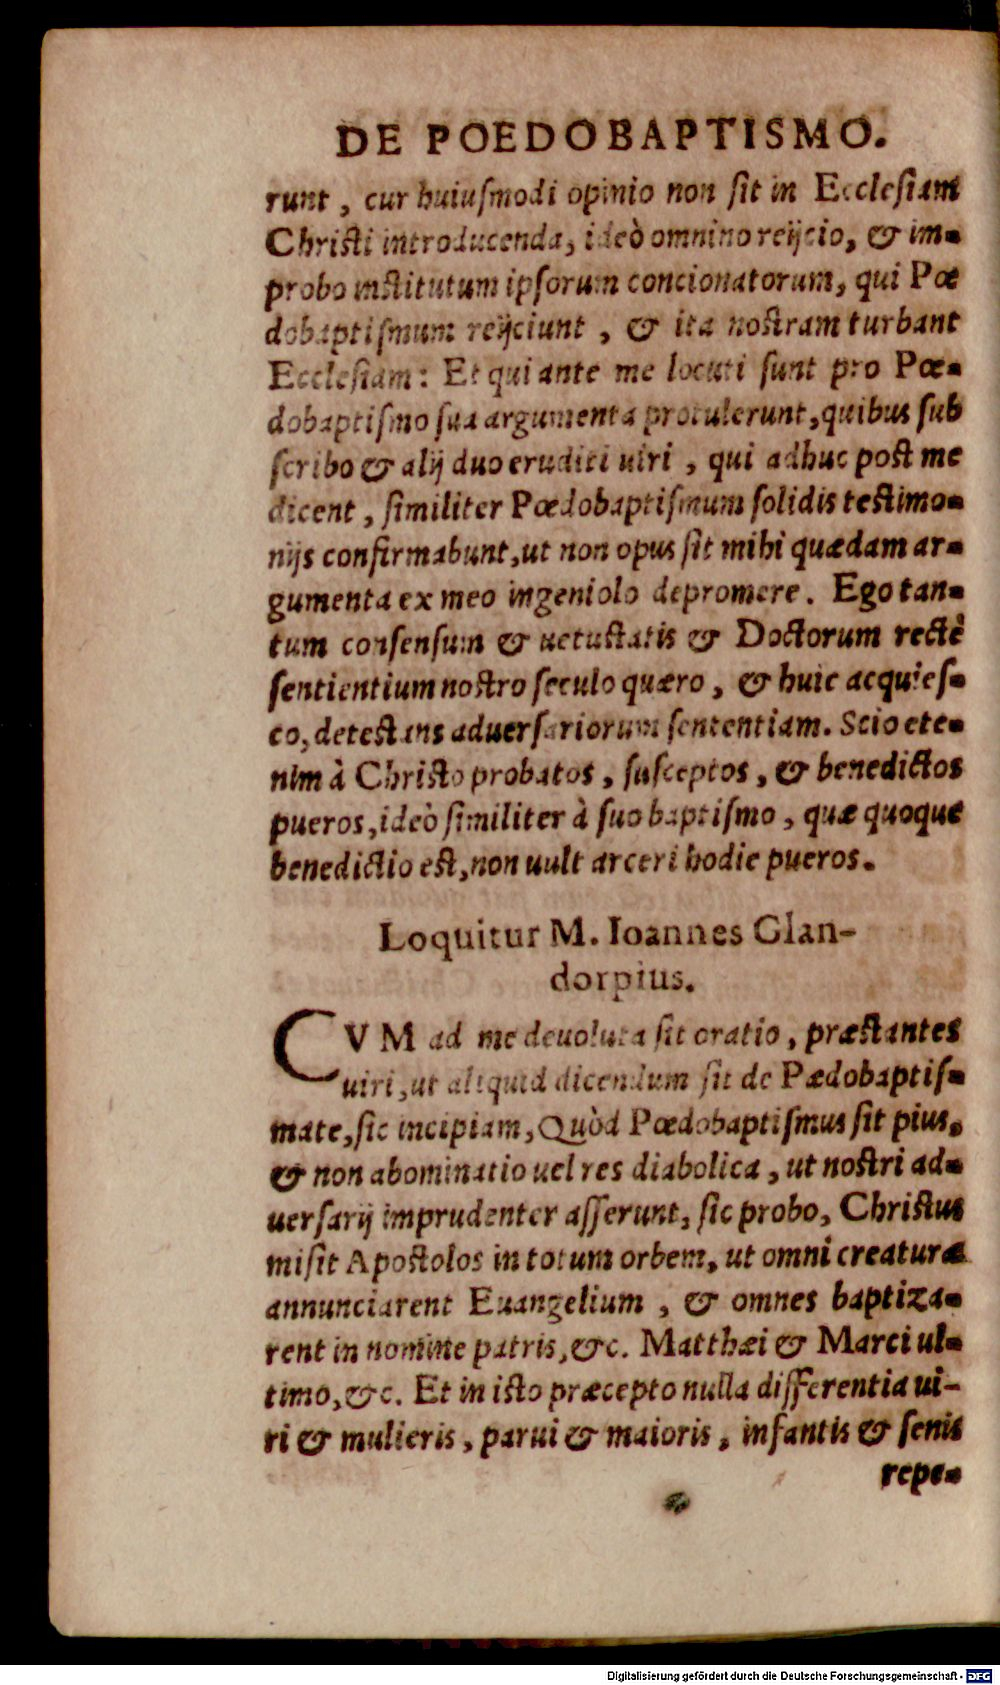 DE POEDOBAPTISMO.
runt , cur huiuſmodi opinio non ſit in Eccleſiam
Chriſti introducenda, ideò omnino reijcio, & im-
probo inſtitutum ipſorum concionatorum, qui Pœ
dobaptiſmum reijciunt , & ita noſtram turbant
Eccleſiam: Et qui ante me locuti ſunt pro Pœ-
dobaptiſmo ſua argumenta protulerunt, quibus ſub
ſcribo & alij duo eruditi uiri , qui adhuc poſt me
dicent , ſimiliter Pœdobaptiſmum ſolidis teſtimo-
nijs confirmabunt, ut non opus ſit mihi quædam ar-
gumenta ex meo ingeniolo depromere. Ego tan-
tum conſenſum & uetuſtatis & Doctorum rectè
ſentientium noſtro ſeculo quæro , & huic acquieſ-
co, deteſtans aduerſariorum ſententiam. Scio ete-
nim à Chriſto probatos , ſuſceptos , & benedictos
pueros, ideò ſimiliter à ſuo baptiſmo , quæ quoque
benedictio eſt, non uult arceri hodie pueros.
Loquitur M. Ioannes Glan-
dorpius.
CVM ad me deuoluta ſit oratio , præſtantes
uiri, ut aliquid dicendum ſit de Pædobaptiſ-
mate, ſic incipiam, Quòd Pœdobaptiſmus ſit pius,
& non abominatio uel res diabolica , ut noſtri ad-
uerſarij imprudenter aſſerunt, ſic probo, Chriſtus
miſit Apoſtolos in totum orbem, ut omni creaturæ
annunciarent Euangelium , & omnes baptiza-
rent in nomine patris, &c. Matthæi & Marci ul-
timo, &c. Et in iſto præcepto nulla differentia ui-
ri & mulieris , parui & maioris , infantis & ſenis
repe-
Digitalisierung gefördert durch die Deutsche Forschungsgemeinschaft - DFG